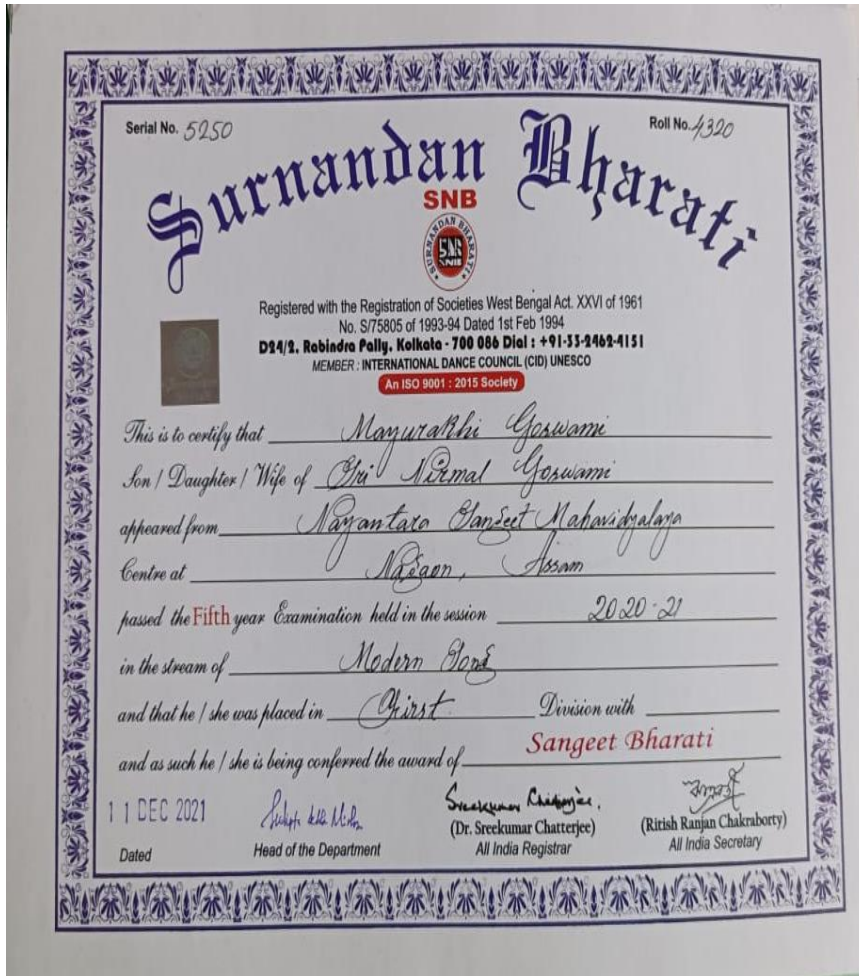 Serial No. 5250 Roll No. 4320
Surnandan Bharati
SNB
SURNANDAN BHARATI
SNB
Registered with the Registration of Societies West Bengal Act. XXVI of 1961
No. S/75805 of 1993-94 Dated 1st Feb 1994
D24/2. Rabindra Pally, Kolkata - 700 086 Dial : +91-33-2462-4151
MEMBER : INTERNATIONAL DANCE COUNCIL (CID) UNESCO
An ISO 9001 : 2015 Society
This is to certify that Mayurakhi Goswami
Son / Daughter / Wife of Shri Nirmal Goswami
appeared from Nayantara Sangeet Mahavidyalaya
Centre at Nagaon, Assam
passed the Fifth year Examination held in the session 2020-21
in the stream of Modern Song
and that he / she was placed in First Division with
and as such he / she is being conferred the award of Sangeet Bharati
11 DEC 2021 Sreekumar Chatterjee.
Dated Head of the Department (Dr. Sreekumar Chatterjee) (Ritish Ranjan Chakraborty)
All India Registrar All India Secretary